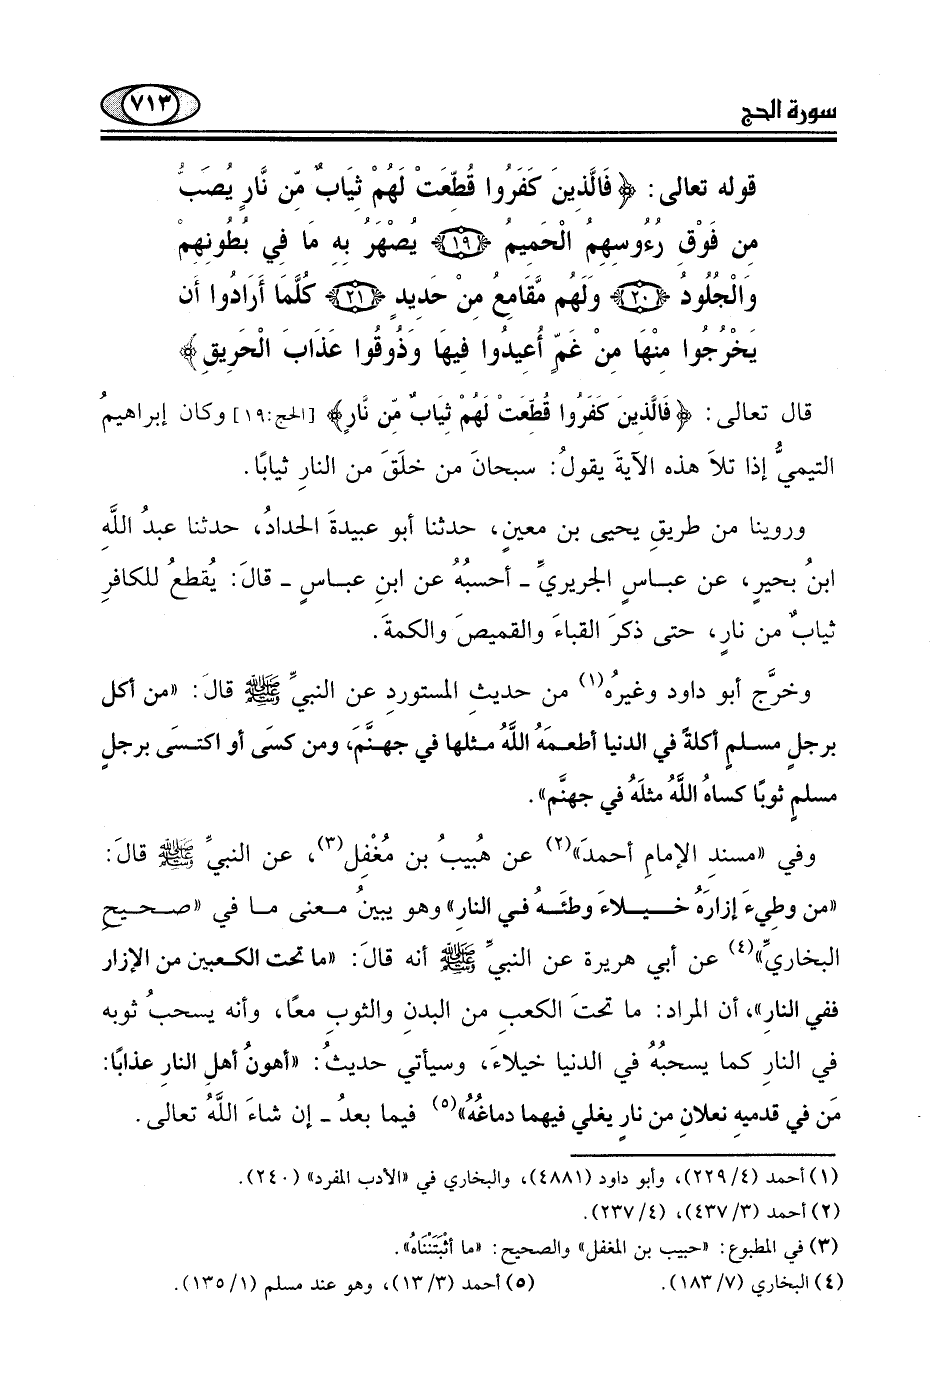 سورة الحج
٧١٣
قوله تعالى: ﴿فَالَّذِينَ كَفَرُوا قُطِّعَتْ لَهُمْ ثِيَابٌ مِّن نَّارٍ يُصَبُّ
مِن فَوْقِ رُءُوسِهِمُ الْحَمِيمُ ﴿١٩﴾ يُصْهَرُ بِهِ مَا فِي بُطُونِهِمْ
وَالْجُلُودُ ﴿٢٠﴾ وَلَهُم مَّقَامِعُ مِنْ حَدِيدٍ ﴿٢١﴾ كُلَّمَا أَرَادُوا أَن
يَخْرُجُوا مِنْهَا مِنْ غَمٍّ أُعِيدُوا فِيهَا وَذُوقُوا عَذَابَ الْحَرِيقِ﴾
قال تعالى: ﴿فَالَّذِينَ كَفَرُوا قُطِّعَتْ لَهُمْ ثِيَابٌ مِّن نَّارٍ﴾ [الحج:١٩] وكان إبراهيمُ
التيميُّ إذا تلاَ هذه الآيةَ يقولُ: سبحانَ من خلَقَ من النارِ ثيابًا.
وروينا من طريقِ يحيى بن معينٍ، حدثنا أبو عبيدةَ الحدادُ، حدثنا عبدُ اللَّهِ
ابنُ بحيرٍ، عن عباسٍ الجريريِّ ـ أحسبُهُ عن ابنِ عباسٍ ـ قالَ: يُقطعُ للكافرِ
ثيابٌ من نارٍ، حتى ذكرَ القباءَ والقميصَ والكمةَ.
وخرَّج أبو داود وغيرُه(١) من حديثِ المستوردِ عن النبيِّ ﷺ قالَ: «من أكل
برجلٍ مسلمٍ أكلةً في الدنيا أطعمَهُ اللَّهُ مثلها في جهنَّمَ، ومن كسَى أو اكتسَى برجلٍ
مسلمٍ ثوبًا كساهُ اللَّهُ مثلَهُ في جهنَّم».
وفي «مسندِ الإمامِ أحمدَ»(٢) عن هُبيبِ بن مُغْفِلٍ(٣)، عن النبيِّ ﷺ قالَ:
«من وطِيءَ إزارَهُ خيلاءَ وطئَهُ في النار» وهو يبينُ معنى ما في «صحيحِ
البخاريِّ»(٤) عن أبي هريرة عن النبيِّ ﷺ أنه قالَ: «ما تحت الكعبين من الإزار
ففي النار»، أن المراد: ما تحتَ الكعبِ من البدنِ والثوبِ معًا، وأنه يسحبُ ثوبه
في النارِ كما يسحبُهُ في الدنيا خيلاءَ، وسيأتي حديثُ: «أهونُ أهلِ النارِ عذابًا:
مَن في قدميهِ نعلان من نارٍ يغلي فيهما دماغُهُ»(٥) فيما بعدُ ـ إن شاءَ اللَّهُ تعالى.
(١) أحمد (٤/ ٢٢٩)، وأبو داود (٤٨٨١)، والبخاري في «الأدب المفرد» (٢٤٠).
(٢) أحمد (٣/ ٤٣٧)، (٤/ ٢٣٧).
(٣) في المطبوع: «حبيب بن المغفل» والصحيح: «ما أَثْبَتْنَاهُ».
(٤) البخاري (٧/ ١٨٣). (٥) أحمد (٣/ ١٣)، وهو عند مسلم (١/ ١٣٥).